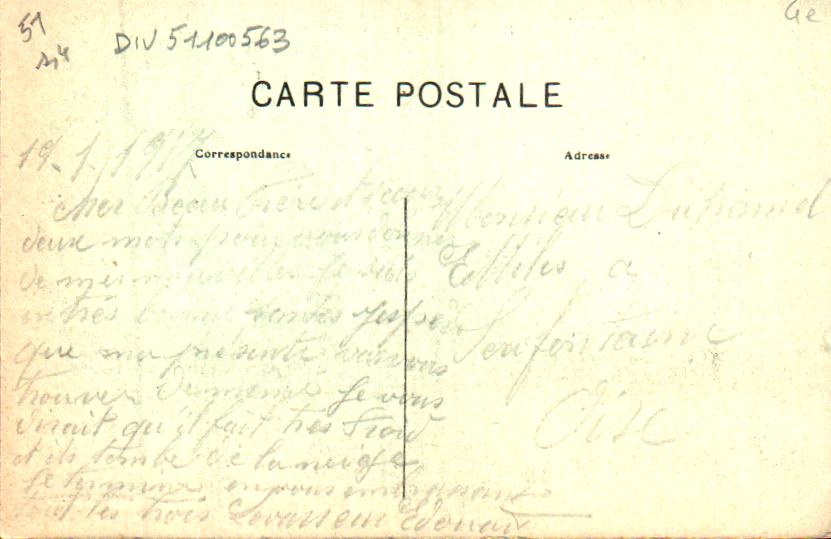 51
DIV 51100563
4e
CARTE POSTALE
Correspondance
Adresse
19-1-1917
cher Beau frère et Soeur
deux mots pour vous donner
de mes nouvelles Je suis
en très bonne santée Jespère
que ma présente vous
trouver De meme Je vous
dirait qu'il fait très froid
et ils tombe de la neige
Je termine en vous embrassant
tout les trois Levasseur Edouard
Monsieur Duhamel
Emiles a
Serifontaine
Oise